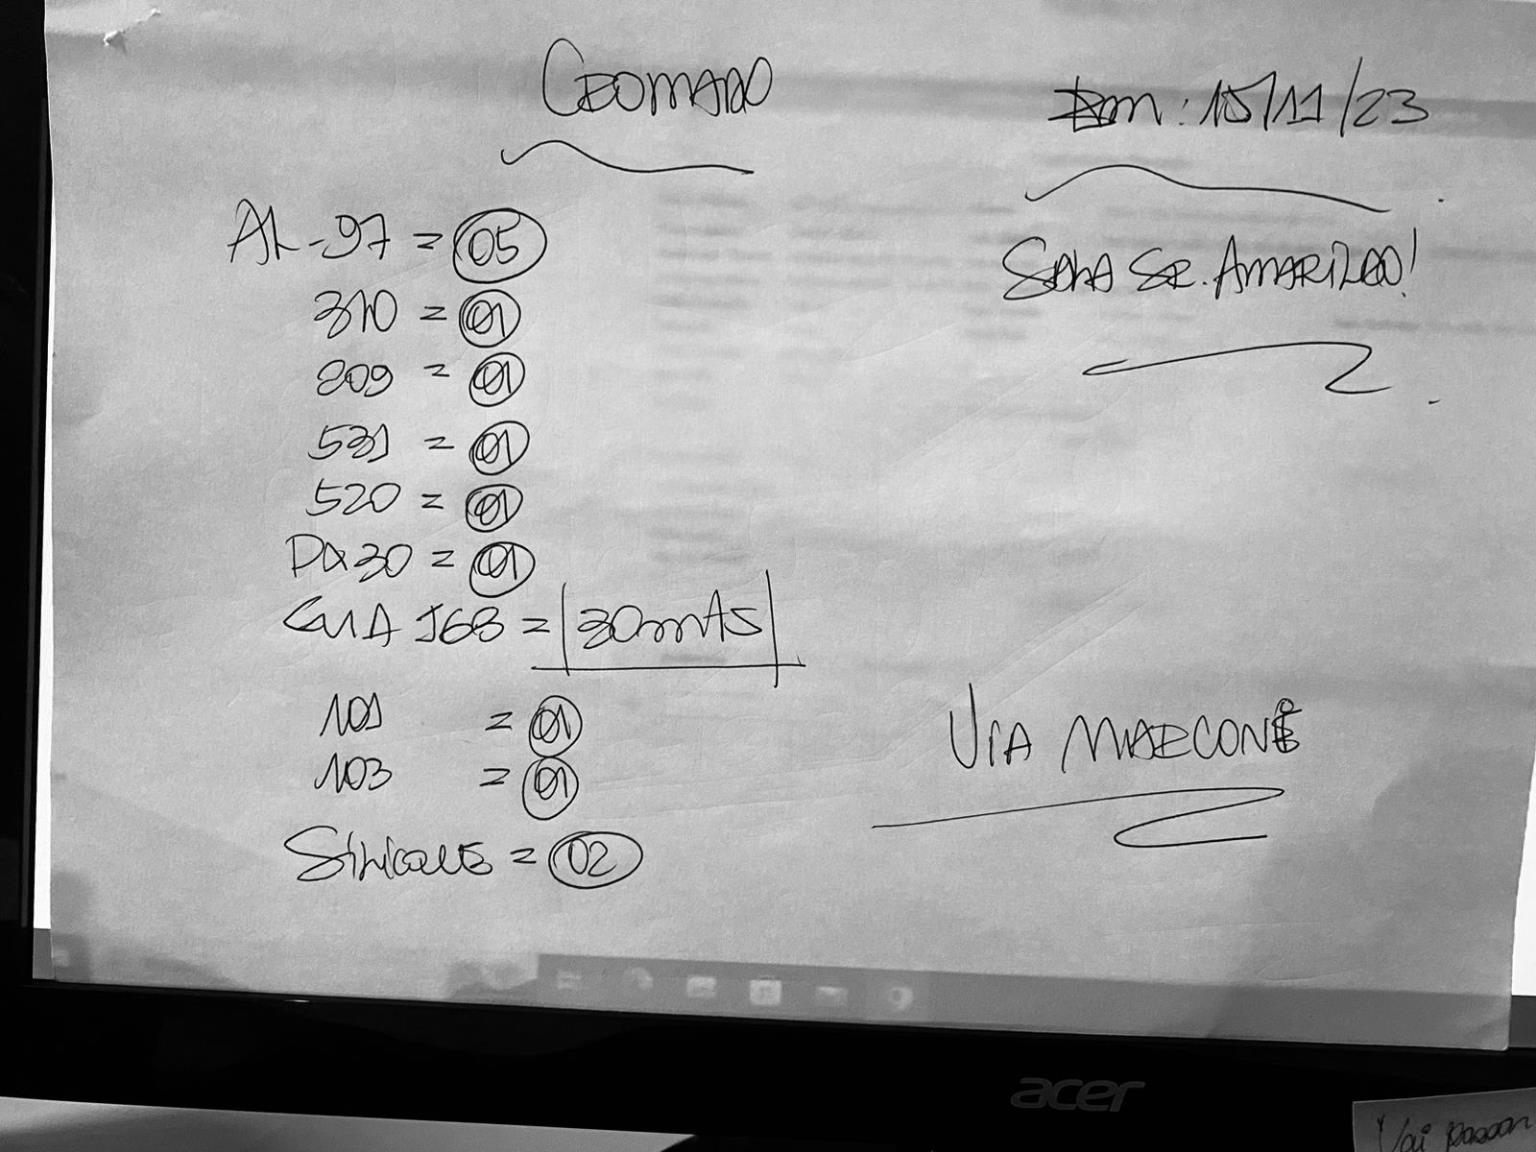 GEOMADO
Em: 15/11/23
SALA SR. AMARILDO!
AL-97 = 05
310 = 01
809 = 01
531 = 01
520 = 01
DQ30 = 01
GUIA J68 = 30mts
101 = 01
103 = 01
= 02
VIA MARCONE
acer
Vai